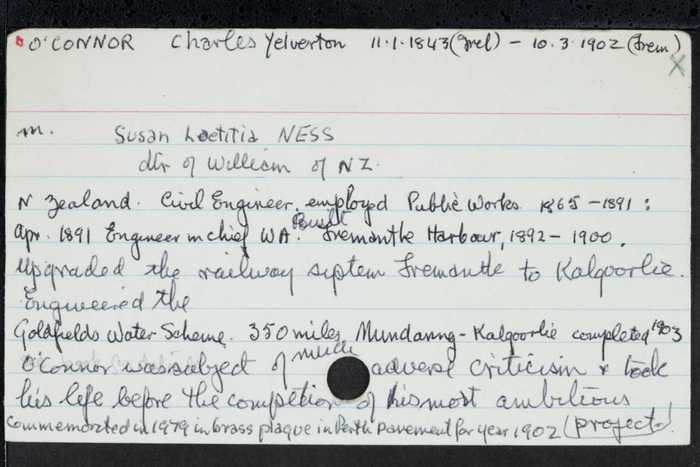 O'CONNOR Charles Yelverton 11.1.1843 (Irel) - 10.3.1902 (Frem)
m. Susan Laetitia NESS
dtr of William of NZ.
N Zealand. Civil Engineer, employed Public Works 1865-1891:
Apr. 1891 Engineer in chief WA. Built Fremantle Harbour, 1892-1900.
Upgraded the railway system Fremantle to Kalgoorlie.
Engineered the
Goldfields Water Scheme. 350 miles Mundaring-Kalgoorlie completed 1903
O'Connor was subject of much adverse criticism & took
his life before the completion of his most ambitious
Commemorated in 1979 in brass plaque in Perth pavement for year 1902 (project)